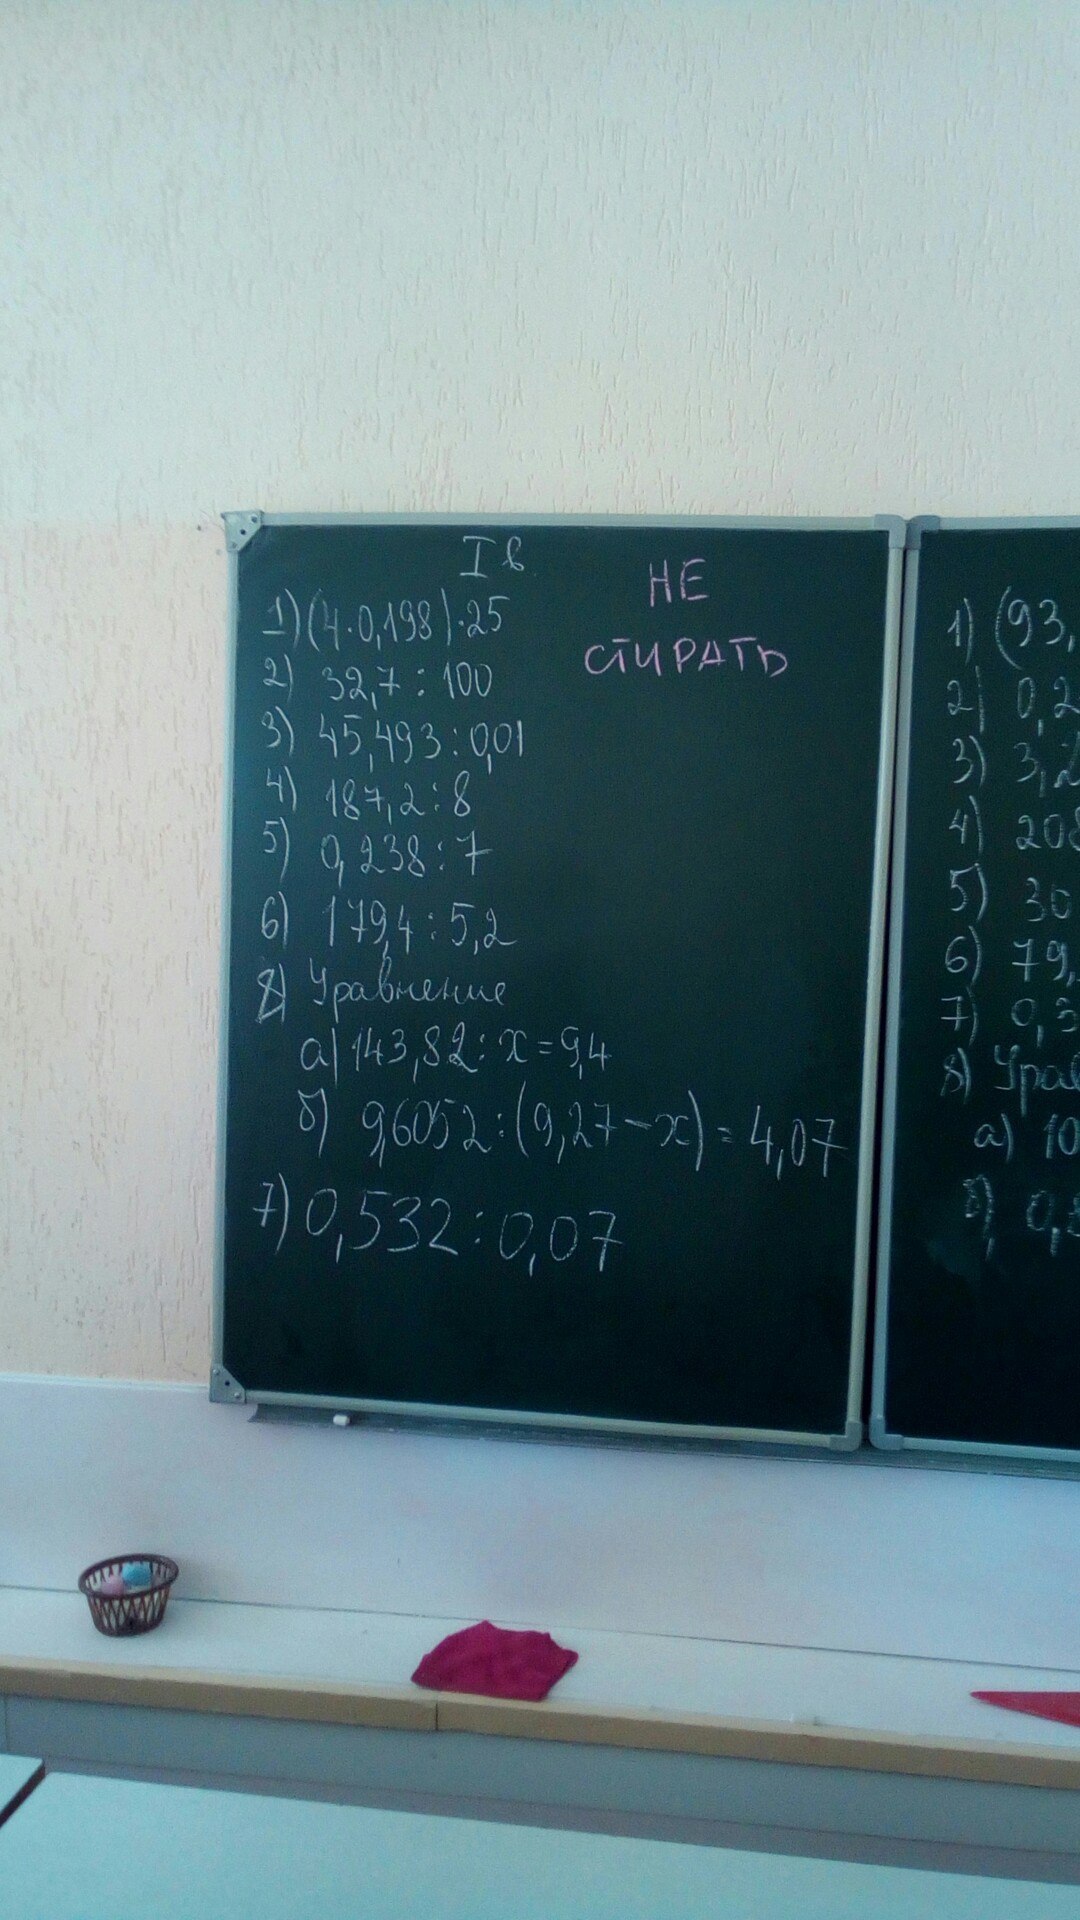 I в
НЕ
СТИРАТЬ
1) (4·0,198)·25
2) 32,7 : 100
3) 45,493 : 0,01
4) 187,2 : 8
5) 0,238 : 7
6) 179,4 : 5,2
8) Уравнение
а) 143,82 : x = 9,4
б) 9,6052 : (9,27 - x) = 4,07
7) 0,532 : 0,07
1) (93,
2) 0,2
3) 3,2
4) 208
5) 30
6) 79,
7) 0,3
8) Урав
а) 10
б) 0,8